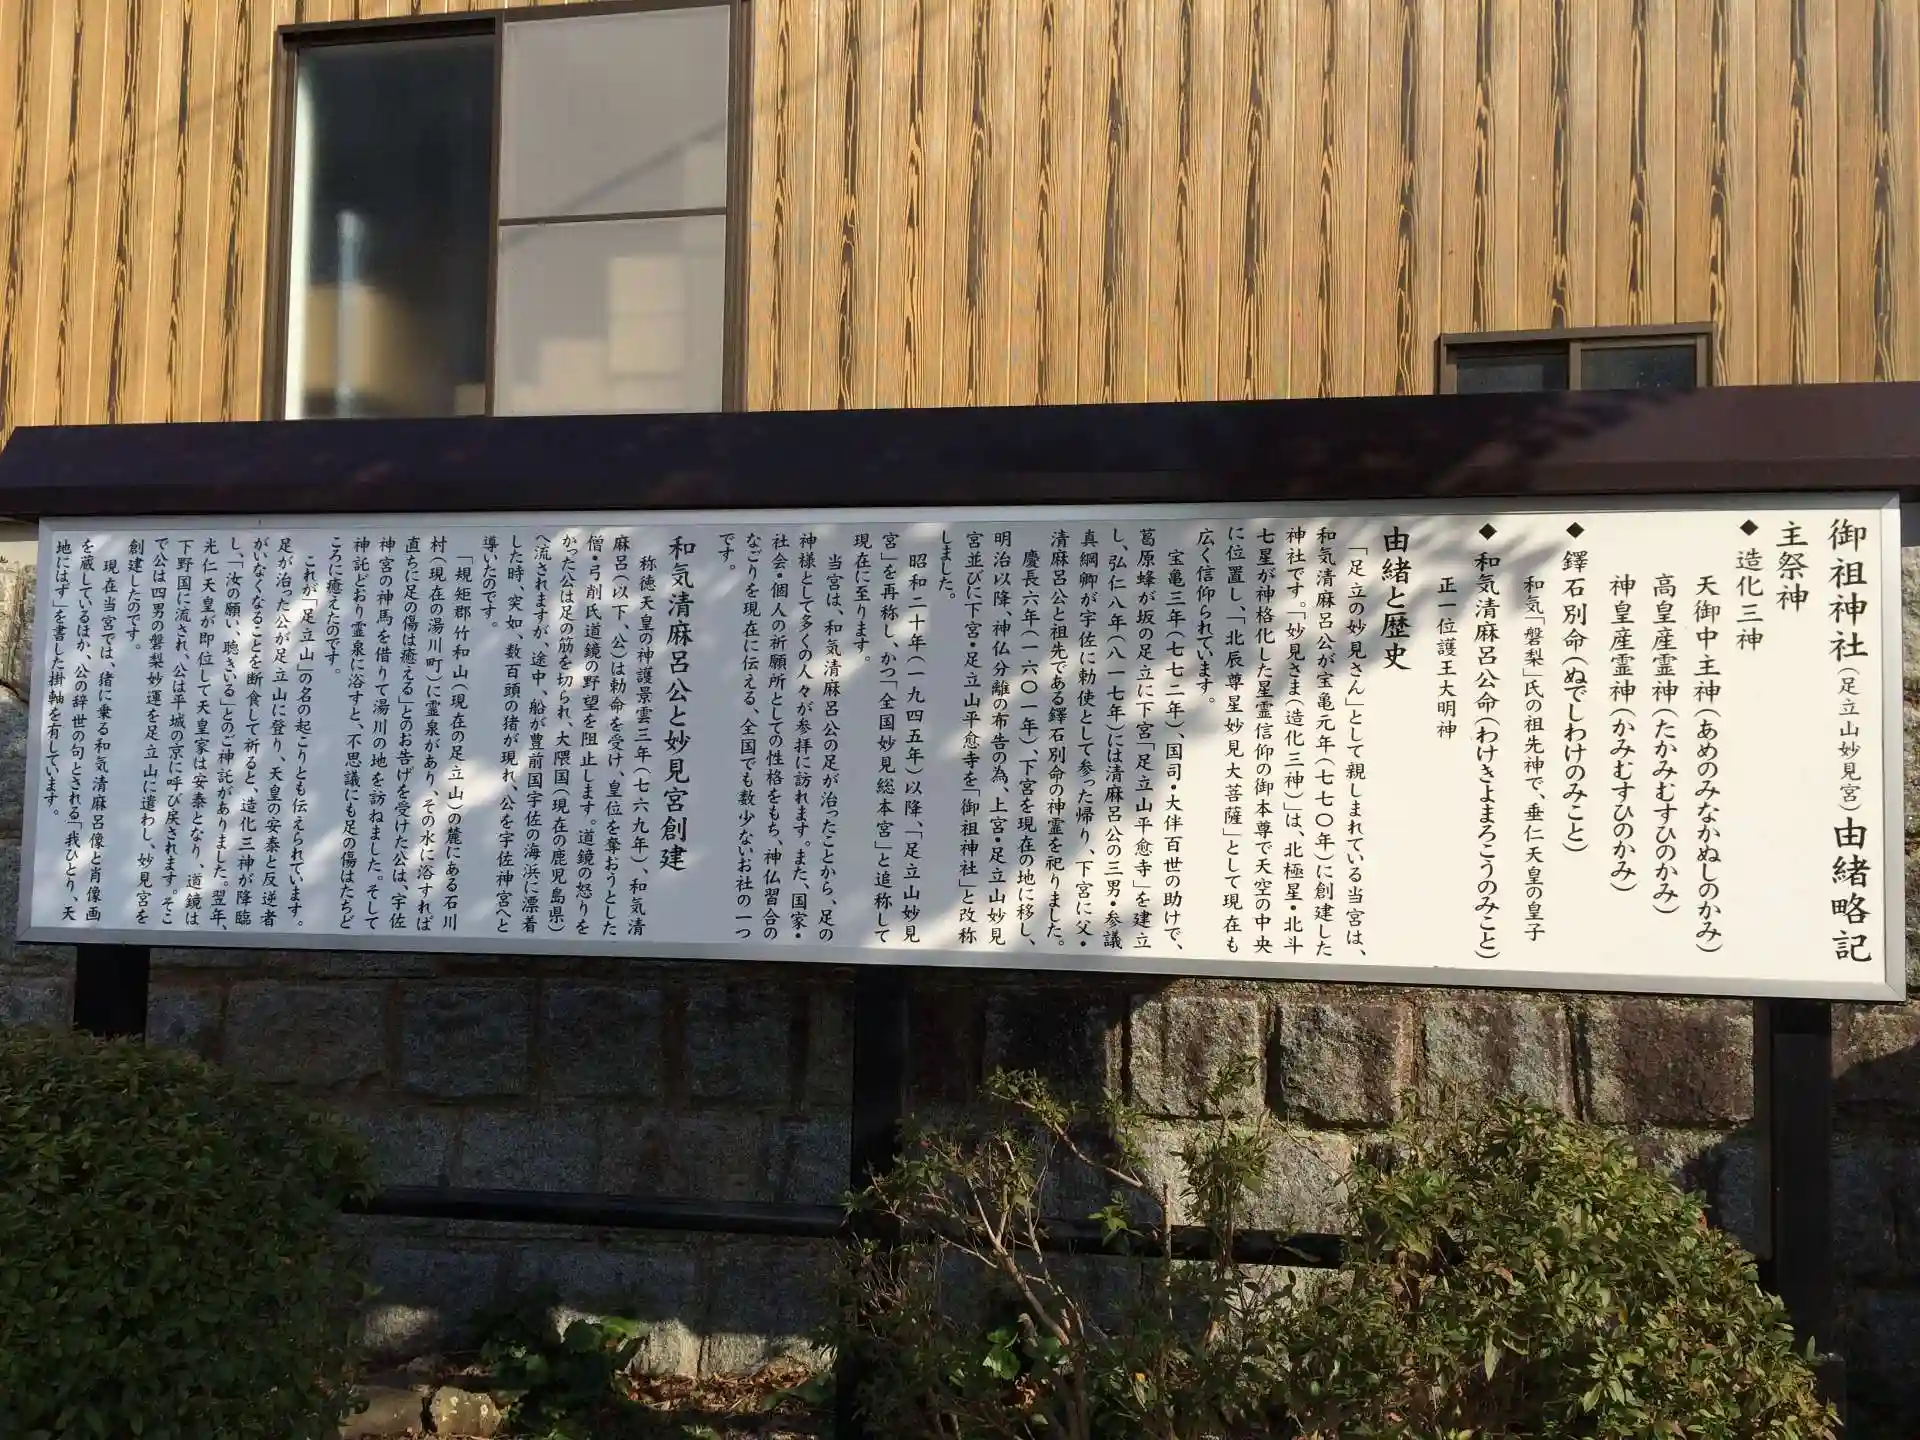 御祖神社（足立山妙見宮）由緒略記
主祭神
◆ 造化三神
天御中主神（あめのみなかぬしのかみ）
高皇産霊神（たかみむすひのかみ）
神皇産霊神（かみむすひのかみ）
◆ 鐸石別命（ぬでしわけのみこと）
和気「磐梨」氏の祖先神で、垂仁天皇の皇子
◆ 和気清麻呂公命（わけきよまろこうのみこと）
正一位護王大明神
由緒と歴史
「足立の妙見さん」として親しまれている当宮は、
和気清麻呂公が宝亀元年（七七〇年）に創建した
神社です。「妙見さま（造化三神）」は、北極星・北斗
七星が神格化した星霊信仰の御本尊で天空の中央
に位置し、「北辰尊星妙見大菩薩」として現在も
広く信仰られています。
宝亀三年（七七二年）、国司・大伴百世の助けで、
葛原蜂が坂の足立に下宮「足立山平愈寺」を建立
し、弘仁八年（八一七年）には清麻呂公の三男・参議
真綱卿が宇佐に勅使として参った帰り、下宮に父・
清麻呂公と祖先である鐸石別命の神霊を祀りました。
慶長六年（一六〇一年）、下宮を現在の地に移し、
明治以降、神仏分離の布告の為、上宮・足立山妙見
宮並びに下宮・足立山平愈寺を「御祖神社」と改称
しました。
昭和二十年（一九四五年）以降、「足立山妙見
宮」を再称し、かつ「全国妙見総本宮」と追称して
現在に至ります。
当宮は、和気清麻呂公の足が治ったことから、足の
神様として多くの人々が参拝に訪れます。また、国家・
社会・個人の祈願所としての性格をもち、神仏習合の
なごりを現在に伝える、全国でも数少ないお社の一つ
です。
和気清麻呂公と妙見宮創建
称徳天皇の神護景雲三年（七六九年）、和気清
麻呂（以下、公）は勅命を受け、皇位を奪おうとした
僧・弓削氏道鏡の野望を阻止します。道鏡の怒りを
かった公は足の筋を切られ、大隈国（現在の鹿児島県）
へ流されますが、途中、船が豊前国宇佐の海浜に漂着
した時、突如、数百頭の猪が現れ、公を宇佐神宮へと
導いたのです。
「規矩郡竹和山（現在の足立山）の麓にある石川
村（現在の湯川町）に霊泉があり、その水に浴すれば
直ちに足の傷は癒える」とのお告げを受けた公は、宇佐
神宮の神馬を借りて湯川の地を訪ねました。そして
神託どおり霊泉に浴すと、不思議にも足の傷はたちど
ころに癒えたのです。
これが「足立山」の名の起こりとも伝えられています。
足が治った公が足立山に登り、天皇の安泰と反逆者
がいなくなることを断食して祈ると、造化三神が降臨
し、「汝の願い、聴きいる」とのご神託がありました。翌年、
光仁天皇が即位して天皇家は安泰となり、道鏡は
下野国に流され、公は平城の京に呼び戻されます。そこ
で公は四男の磐梨妙運を足立山に遣わし、妙見宮を
創建したのです。
現在当宮では、猪に乗る和気清麻呂像と肖像画
を蔵しているほか、公の辞世の句とされる「我ひとり、天
地にはず」を書した掛軸を有しています。